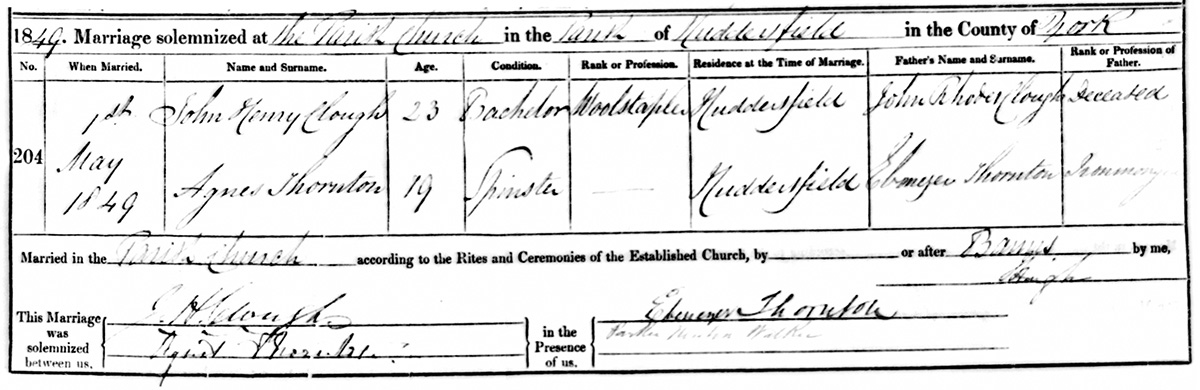 1849. Marriage solemnized at the Parish Church in the Parish of Huddersfield in the County of York
No. When Married. Name and Surname. Age. Condition. Rank or Profession. Residence at the Time of Marriage. Father's Name and Surname. Rank or Profession of Father.
204 1st May 1849 John Henry Clough 23 Bachelor Woolstapler Huddersfield John Rhodes Clough Deceased
Agnes Thornton 19 Spinster Huddersfield Ebenezer Thornton Ironmonger
Married in the Parish Church according to the Rites and Ceremonies of the Established Church, by or after Banns by me,
This Marriage was solemnized between us, J. H. Clough Agnes Thornton in the Presence of us. Ebenezer Thornton Walker